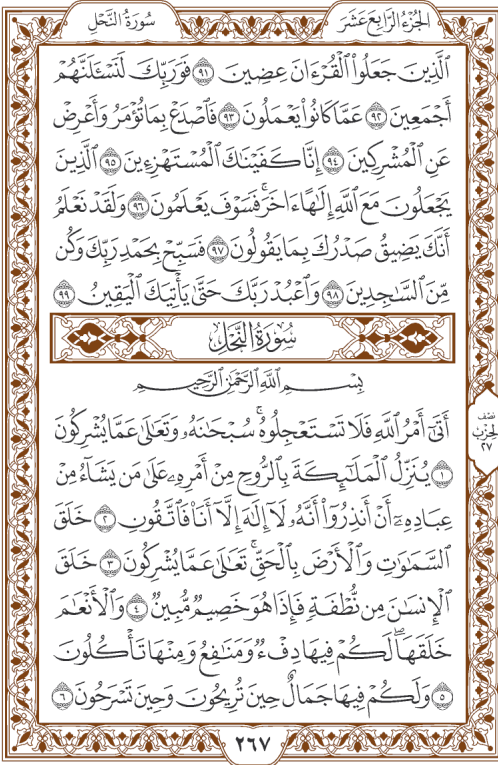 سُورَةُ النَّحْلِ
الجُزْءُ الرَّابِعَ عَشَرَ
الَّذِينَ جَعَلُوا۟ الْقُرْءَانَ عِضِينَ ٩١ فَوَرَبِّكَ لَنَسْـَٔلَنَّهُمْ
أَجْمَعِينَ ٩٢ عَمَّا كَانُوا۟ يَعْمَلُونَ ٩٣ فَاصْدَعْ بِمَا تُؤْمَرُ وَأَعْرِضْ
عَنِ الْمُشْرِكِينَ ٩٤ إِنَّا كَفَيْنَاكَ الْمُسْتَهْزِءِينَ ٩٥ الَّذِينَ
يَجْعَلُونَ مَعَ اللَّهِ إِلَٰهًا ءَاخَرَ ۚ فَسَوْفَ يَعْلَمُونَ ٩٦ وَلَقَدْ نَعْلَمُ
أَنَّكَ يَضِيقُ صَدْرُكَ بِمَا يَقُولُونَ ٩٧ فَسَبِّحْ بِحَمْدِ رَبِّكَ وَكُن
مِّنَ السَّٰجِدِينَ ٩٨ وَاعْبُدْ رَبَّكَ حَتَّىٰ يَأْتِيَكَ الْيَقِينُ ٩٩
سُورَةُ النَّحْلِ
بِسْمِ اللَّهِ الرَّحْمَٰنِ الرَّحِيمِ
أَتَىٰٓ أَمْرُ اللَّهِ فَلَا تَسْتَعْجِلُوهُ ۚ سُبْحَٰنَهُۥ وَتَعَٰلَىٰ عَمَّا يُشْرِكُونَ
١ يُنَزِّلُ الْمَلَٰٓئِكَةَ بِالرُّوحِ مِنْ أَمْرِهِۦ عَلَىٰ مَن يَشَآءُ مِنْ
عِبَادِهِۦٓ أَنْ أَنذِرُوٓا۟ أَنَّهُۥ لَآ إِلَٰهَ إِلَّآ أَنَا۠ فَاتَّقُونِ ٢ خَلَقَ
السَّمَٰوَٰتِ وَالْأَرْضَ بِالْحَقِّ ۚ تَعَٰلَىٰ عَمَّا يُشْرِكُونَ ٣ خَلَقَ
الْإِنسَٰنَ مِن نُّطْفَةٍ فَإِذَا هُوَ خَصِيمٌ مُّبِينٌ ٤ وَالْأَنْعَٰمَ
خَلَقَهَا ۗ لَكُمْ فِيهَا دِفْءٌ وَمَنَٰفِعُ وَمِنْهَا تَأْكُلُونَ
٥ وَلَكُمْ فِيهَا جَمَالٌ حِينَ تُرِيحُونَ وَحِينَ تَسْرَحُونَ ٦
نصف
الحزب
٢٧
٢٦٧